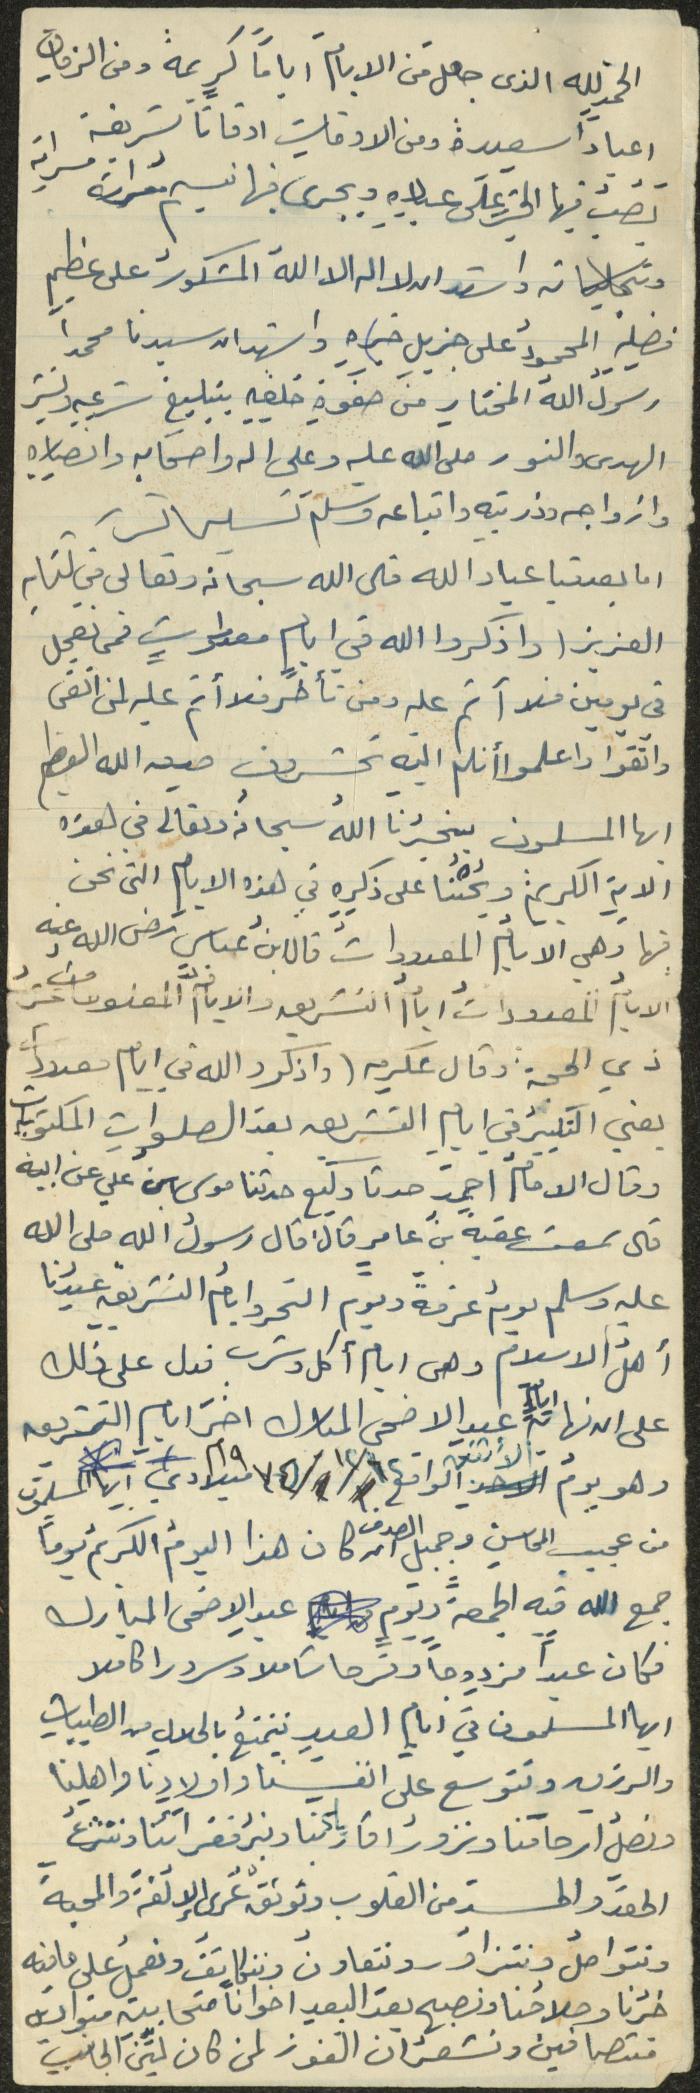 الحمد لله الذى جعل من الايام اياماً كريمة ومن الزمان
اعياداً سعيدة ومن الاوقات اوقاتاً شريفة
تَصُبُّ فيها الخير على عباده ويجرى فيها نسيم مسراته
وتجلياته واشهد ان لا اله الا الله المشكور على عظيم
فضله المحمودُ على جزيل خيره واشهد ان سيدنا محمداً
رسول الله المختار من صفوة خلقه بتبليغ شرعه ونشر
الهدى والنور صلى الله عليه وعلى اله واصحابه وانصاره
وازواجه وذريته واتباعه وسلم تسليما كثيرا
اما بعد فيا عباد الله قال الله سبحانه وتعالى في كتابه
العزيز ( واذكروا الله في ايام معدودات فمن تعجل
في يومين فلا أثم عليه ومن تأخر فلا أثم عليه لمن اتقى
واتقوا واعلموا أنكم اليه تحشرون صدق الله العظيم
ايها المسلمون يخبرنا اللهُ سبحانه وتعالى في هذه
الاية الكريمة ويَحُثُّنا على ذكره في هذه الايام التى نحن
فيها وهي الايام المعدودات قال ابن عباس رضى الله عنه
الايام المعدودات ايامُ التشريق والايام المعلومات عشر من
ذي الحجة: وقال عكرمه ( واذكروا الله في ايام معدودات
يعني التكبير في ايام التشريق بعد الصلوات المكتوبات
وقال الامام احمد حدثنا وكيع حدثنا موسى بن علي عن ابيه
قال سمعت عقبة بن عامر قال: قال رسول الله صلى الله
عليه وسلم يوم عرفة ويوم النحر وايام التشريق عيدنا
أهل الاسلام وهى ايام أكل وشرب فدل على ذلك
على ان نهاية ايام عيد الاضحى المبارك اخر ايام التشريق
وهو يوم الاثنين الواقع ميلادي ايها المسلمون
من عجيب المحاسن وجميل الصدف ان كان هذا اليوم الكريم يوماً
جمع الله فيه الجمعة ويوم عيد الاضحى المبارك
فكان عيداً مزدوجاً وفرحا شاملا وسرورا كاملا
ايها المسلمون في ايام العيد نتمتع بالحلال من الطيبات
والرزق ونتوسع على انفسنا واولادنا واهلينا
ونصل ارحامنا ونزور اقاربنا ونبر فقرائنا وننزع
الحقد والحسد من القلوب ونوثق عُرى الإلفة والمحبة
ونتواصل ونتزاور ونتعاون ونتكاتف ونعمل على مافيه
خيرنا وصلاحنا ونصبح بعد البعد اخواناً متحابين متوادين
متصافين ونشعر ان الفوز لمن كان ليّن الجانب